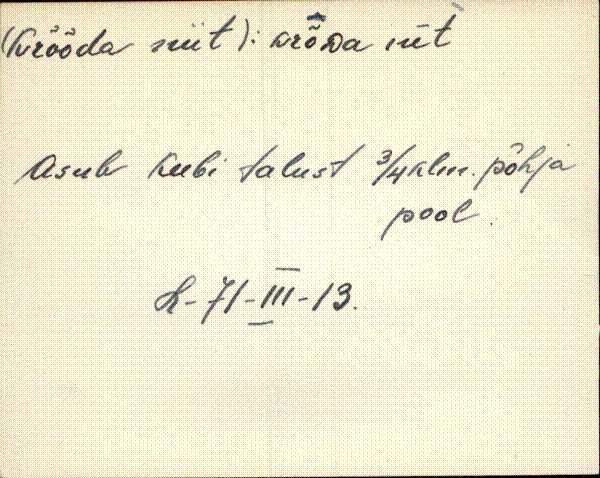 (Krõõda niit): krȭᴅa nīt
Asub Kubi talust 3/4 klm. põhja
pool.
L-71-III-13.